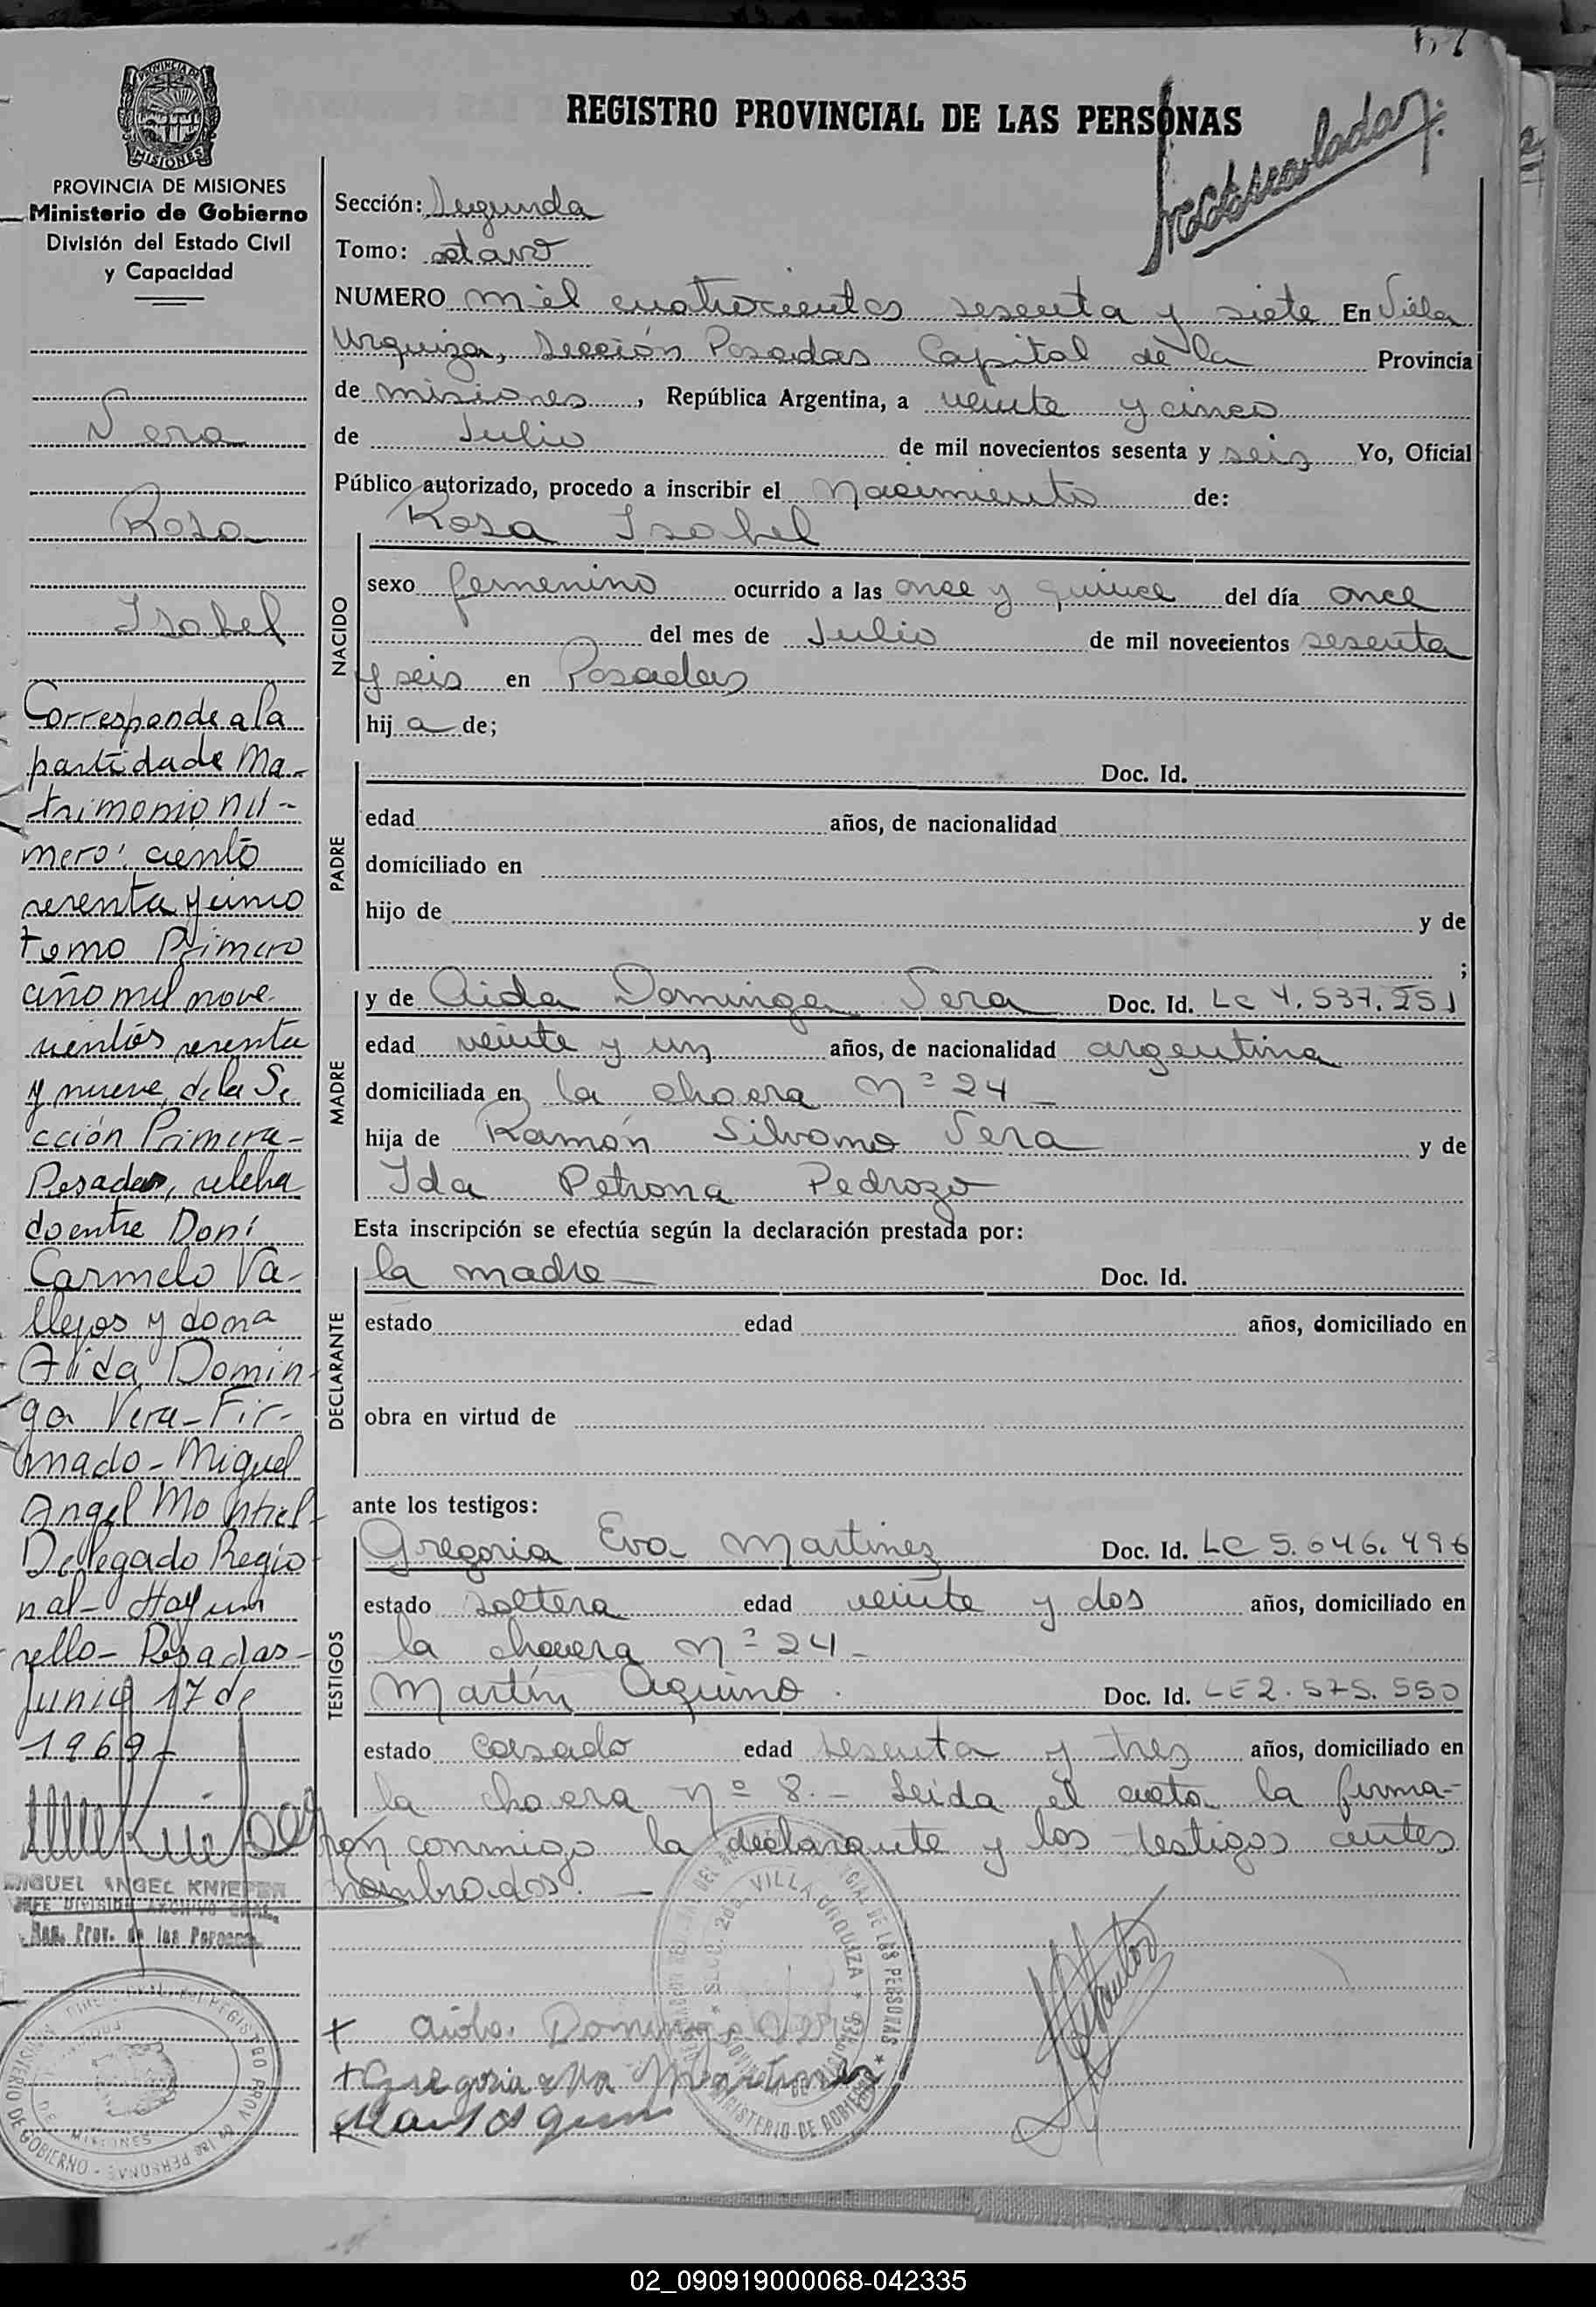 REGISTRO PROVINCIAL DE LAS PERSONAS
Matriculado
PROVINCIA DE MISIONES
Ministerio de Gobierno
División del Estado Civil
y Capacidad
Vera
Rosa
Isabel
Corresponde a la
partida de Ma-
trimonio nú-
mero: ciento
sesenta y cinco
tomo Primero
año mil nove-
cientos sesenta
y nueve, de la Se
cción Primera-
Posadas, celebra
do entre Don:
Carmelo Va-
llejos y doña
Aida Domin-
ga Vera-Fir-
mado-Miguel
Angel Montiel-
Delegado Regio-
nal- Hay un
sello- Posadas-
Junio 17 de
1969-
MIGUEL ANGEL KNIEPER
JEFE DIVISION ARCHIVO GRAL.
Reg. Prov. de las Personas
Sección: Segunda
Tomo: octavo
NUMERO mil cuatrocientos sesenta y siete En Villa
Urquiza, Sección Posadas Capital de la Provincia
de misiones, República Argentina, a veinte y cinco
de Julio de mil novecientos sesenta y seis Yo, Oficial
Público autorizado, procedo a inscribir el Nacimiento de:
Rosa Isabel
NACIDO
sexo femenino ocurrido a las once y quince del día once
del mes de Julio de mil novecientos sesenta
y seis en Posadas
hij a de;
PADRE
Doc. Id.
edad años, de nacionalidad
domiciliado en
hijo de y de
;
MADRE
y de Aida Dominga Vera Doc. Id. LC 4.537.251
edad veinte y un años, de nacionalidad argentina
domiciliada en la chacra Nº 24
hija de Ramón Silvano Vera y de
Ida Petrona Pedrozo
Esta inscripción se efectúa según la declaración prestada por:
DECLARANTE
la madre Doc. Id.
estado edad años, domiciliado en
obra en virtud de
ante los testigos:
TESTIGOS
Gregoria Eva Martinez Doc. Id. LC 5.646.496
estado soltera edad veinte y dos años, domiciliado en
la chacra Nº 24-
Martín Aquino. Doc. Id. LE 2.575.550
estado casado edad sesenta y tres años, domiciliado en
la chacra Nº 8.- Leida el acta la firma-
ron conmigo la declarante y los testigos antes
nombrados.-
VILLA URQUIZA
MINISTERIO DE GOBIERNO
+ Aida Dominga Vera
+ Gregoria Eva Martinez
+ Martin Aquino
02_090919000068-042335